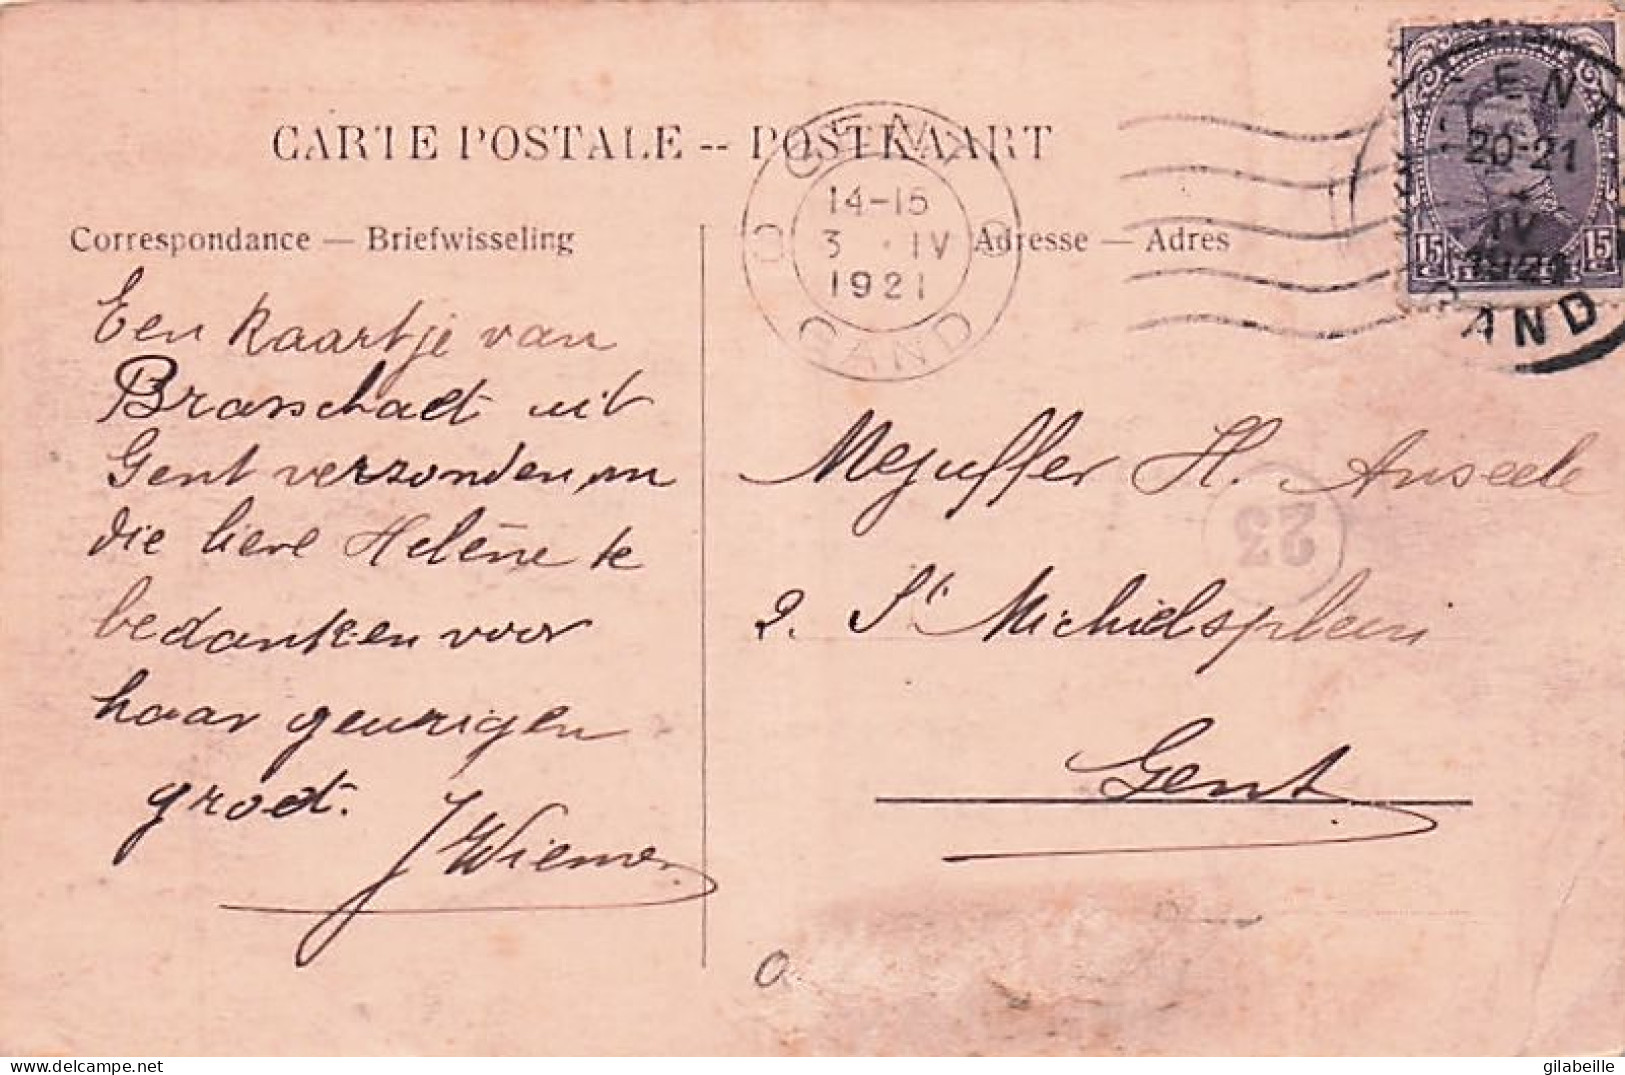 CARTE POSTALE -- POSTKAART
GENT
14-15
3 · IV
1921
GAND
GENT
20-21
IV
1921
GAND
15 15
Correspondance — Briefwisseling
Adresse — Adres
Een kaartje van
Brasschaet uit
Gent verzonden, om
die lieve Helène te
bedanken voor
haar geurigen
groet.
J Wiemer
Mejuffer H. Anseele
23
2. St Michielsplein
Gent
gilabeille